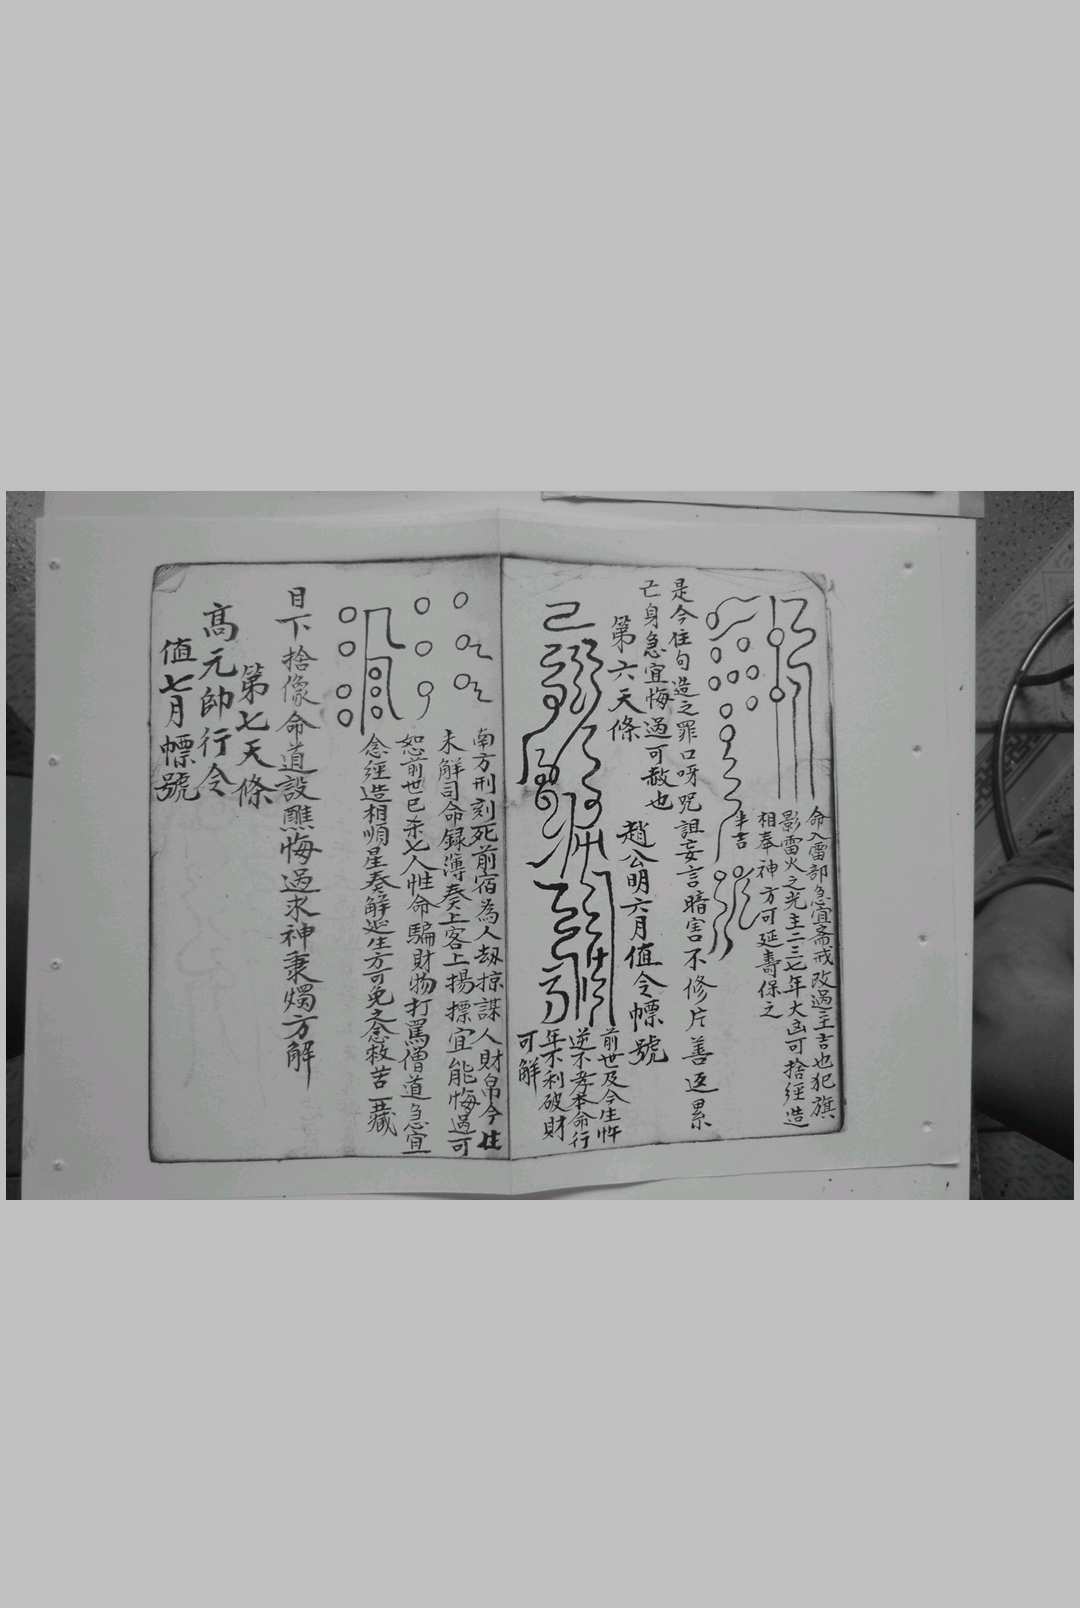 命入雷部急宜斋戒改過主吉也犯旗
影雷火之光主二三七年大凶可捨經造
相奉神方可延壽保之
半吉
是今住句造之罪口呀咒詛妄言暗害不修片善逗累
亡身急宜悔過可赦也
第六天條
趙公明六月值令幖號
前世及今生忤
逆不孝本命行
年不利破財
可解
南方刑刻死前宿為人劫掠謀人財帛今往
未解司命録薄奏上客上揚摽宜能悔過可
恕前世巳杀七人性命騙財物打罵僧道急宜
念經造相順星奏解延生方可免之念救苦一藏
目下捨像命道設醮悔過求神秉燭方解
第七天條
髙元帥行令
值七月幖號